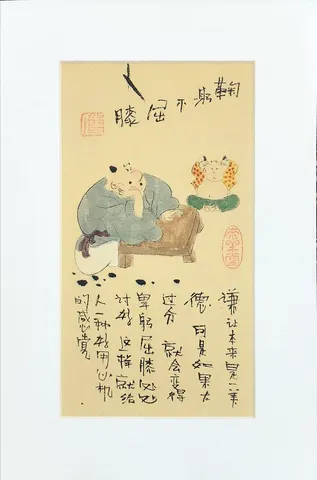 鞠躬不屈膝
谦让本来是一美
德 可是如果太
过分 就会变得
卑躬屈膝处处
讨好 这样就给
人一种好用心机
的感觉